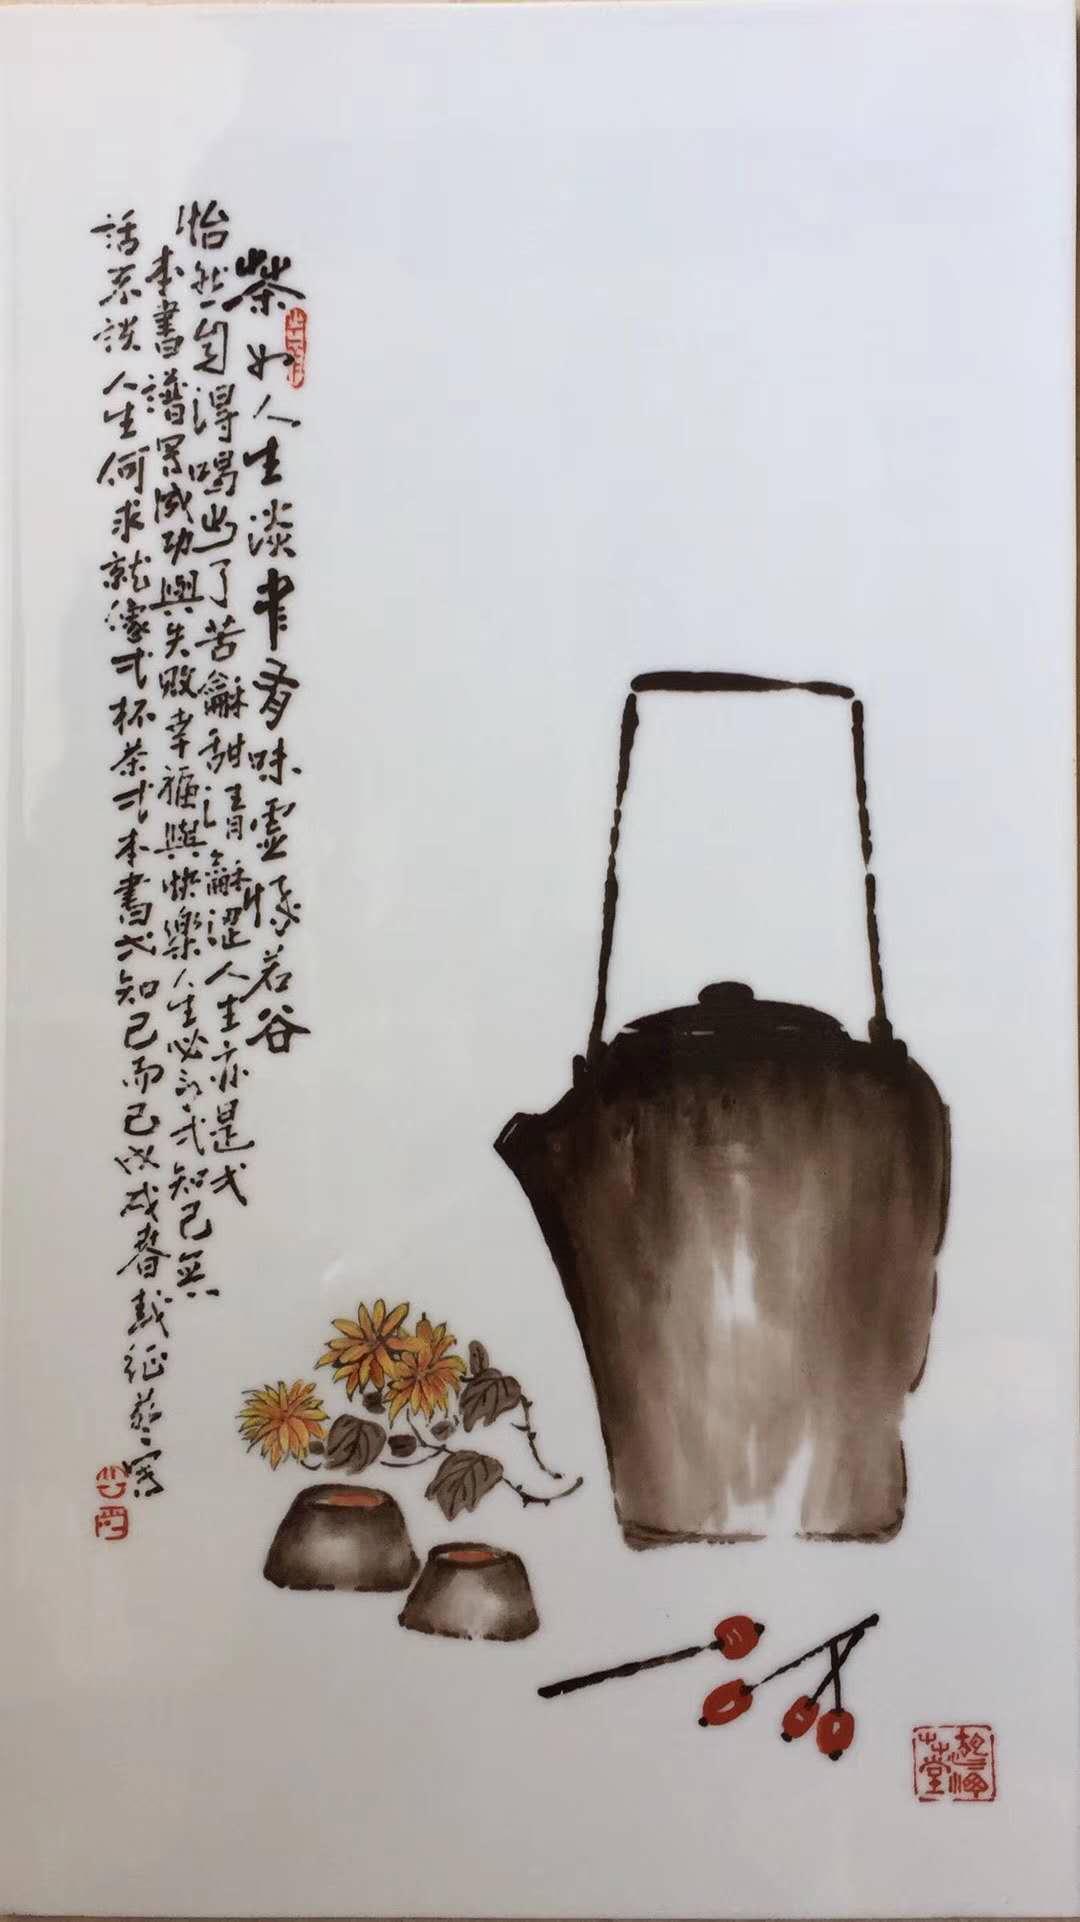 茶如人生淡中有味虛懷若谷
怡然自得喝出了苦龢甜清龢澀人生亦是弌
本書譜寫成功與失敗幸福與快樂人生必以弌知己無
話不談人生何求就像弌杯茶弌本書弌知己而已戊戌春寫